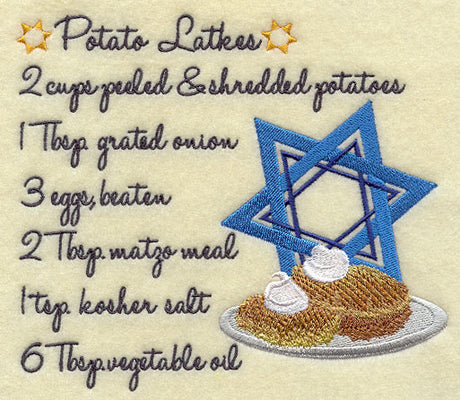 Potato Latkes
2 cups peeled & shredded potatoes
1 Tbsp. grated onion
3 eggs, beaten
2 Tbsp. matzo meal
1 tsp. kosher salt
6 Tbsp. vegetable oil